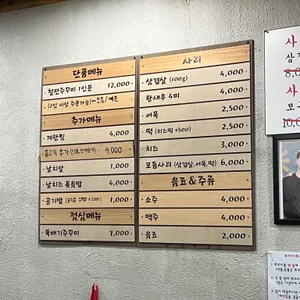 단품메뉴
철판쭈꾸미 1인분 12,000
(2인 이상 주문가능)
추가메뉴
계란찜 4,000
4,000
날치알 1,000
날치즈 볶음밥 4,000
공기밥 1,000
점심메뉴
뚝배기쭈꾸미 7,000
사리
삼겹살 (100g) 4,000
왕새우 4미 4,000
어묵 2,500
떡 (치즈떡 +500) 2,500
치즈 3,000
모듬사리 (삼겹살,어묵,떡) 6,000
음료&주류
소주 4,000
맥주 4,000
음료 2,000
사
삼
8,0
사
모
10,0